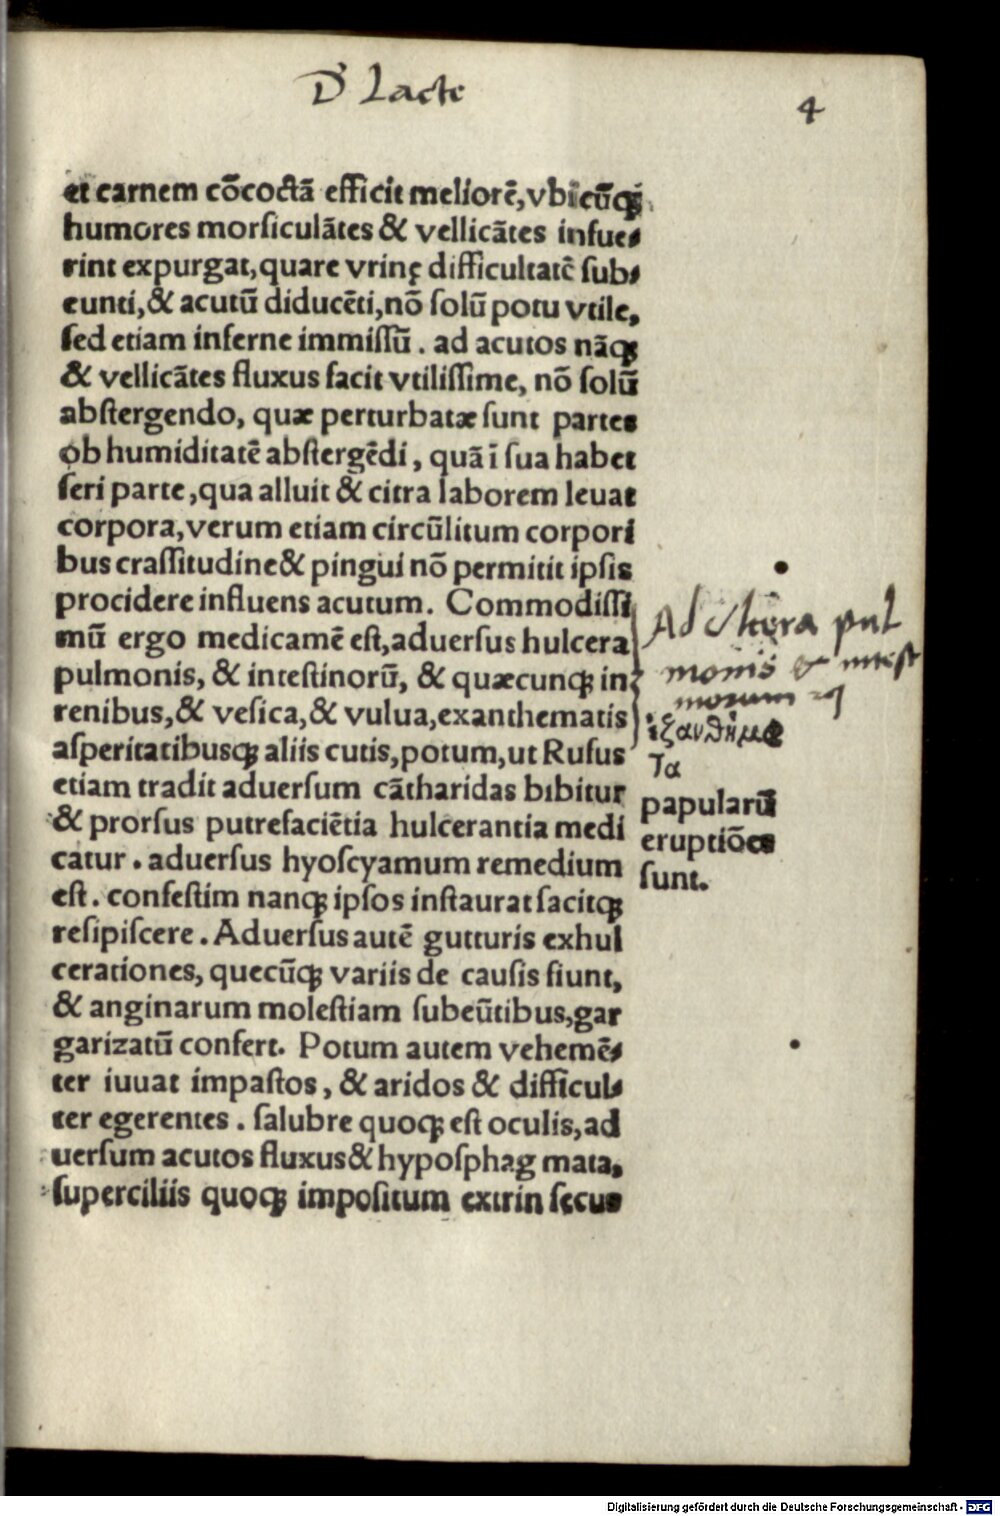 D' Lacte
4
et carnem cōcoctā efficit meliorē, vbicūqꝫ
humores morſiculātes & vellicātes infue⸗
rint expurgat, quare vrinę difficultatē ſub⸗
eunti, & acutū diducēti, nō ſolū potu vtile,
ſed etiam inferne immiſſū. ad acutos nāqꝫ
& vellicātes fluxus facit vtiliſſime, nō ſolū
abſtergendo, quæ perturbatæ ſunt partes
ob humiditatē abſtergēdi, quā ī ſua habet
ſeri parte, qua alluit & citra laborem leuat
corpora, verum etiam circūlitum corpori
bus craſſitudine & pingui nō permittit ipſis
procidere influens acutum. Commodiſſi
mū ergo medicamē eſt, aduerſus hulcera
pulmonis, & inteſtinorū, & quæcunqꝫ in
renibus, & veſica, & vulua, exanthematis
aſperitatibusqꝫ aliis cutis, potum, ut Rufus
etiam tradit aduerſum cātharidas bibitur
& prorſus putrefaciētia hulcerantia medi
catur. aduerſus hyoſcyamum remedium
eſt. confeſtim nanqꝫ ipſos inſtaurat facitqꝫ
reſipiſcere. Aduerſus autē gutturis exhul
cerationes, quecūqꝫ variis de cauſis fiunt,
& anginarum moleſtiam ſubeūtibus, gar
garizatū confert. Potum autem vehemē⸗
ter iuuat impaſtos, & aridos & difficul⸗
ter egerentes. ſalubre quoqꝫ eſt oculis, ad
uerſum acutos fluxus & hypoſphag mata,
ſuperciliis quoqꝫ impoſitum extrin ſecus
Ad ulcera pul
monis & inteſt
ἐξανθήμα
τα
papularū
eruptiōes
ſunt.
Digitalisierung gefördert durch die Deutsche Forschungsgemeinschaft - DFG